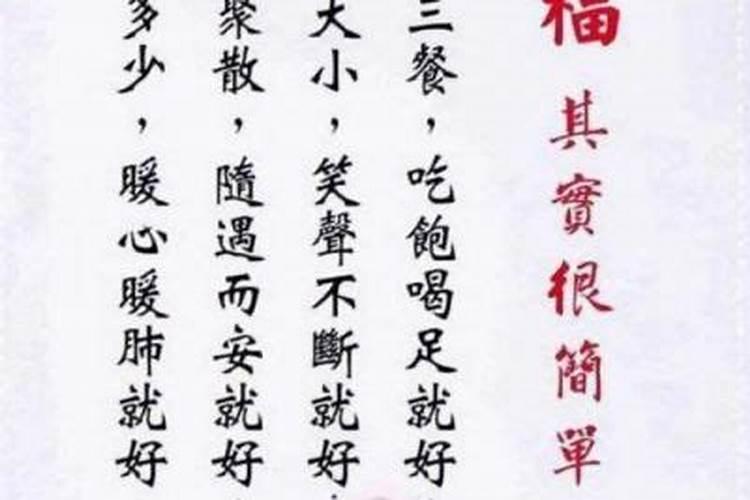 福其實很簡單
三餐,吃飽喝足就好
大小,笑聲不斷就好
聚散,隨遇而安就好
多少,暖心暖肺就好